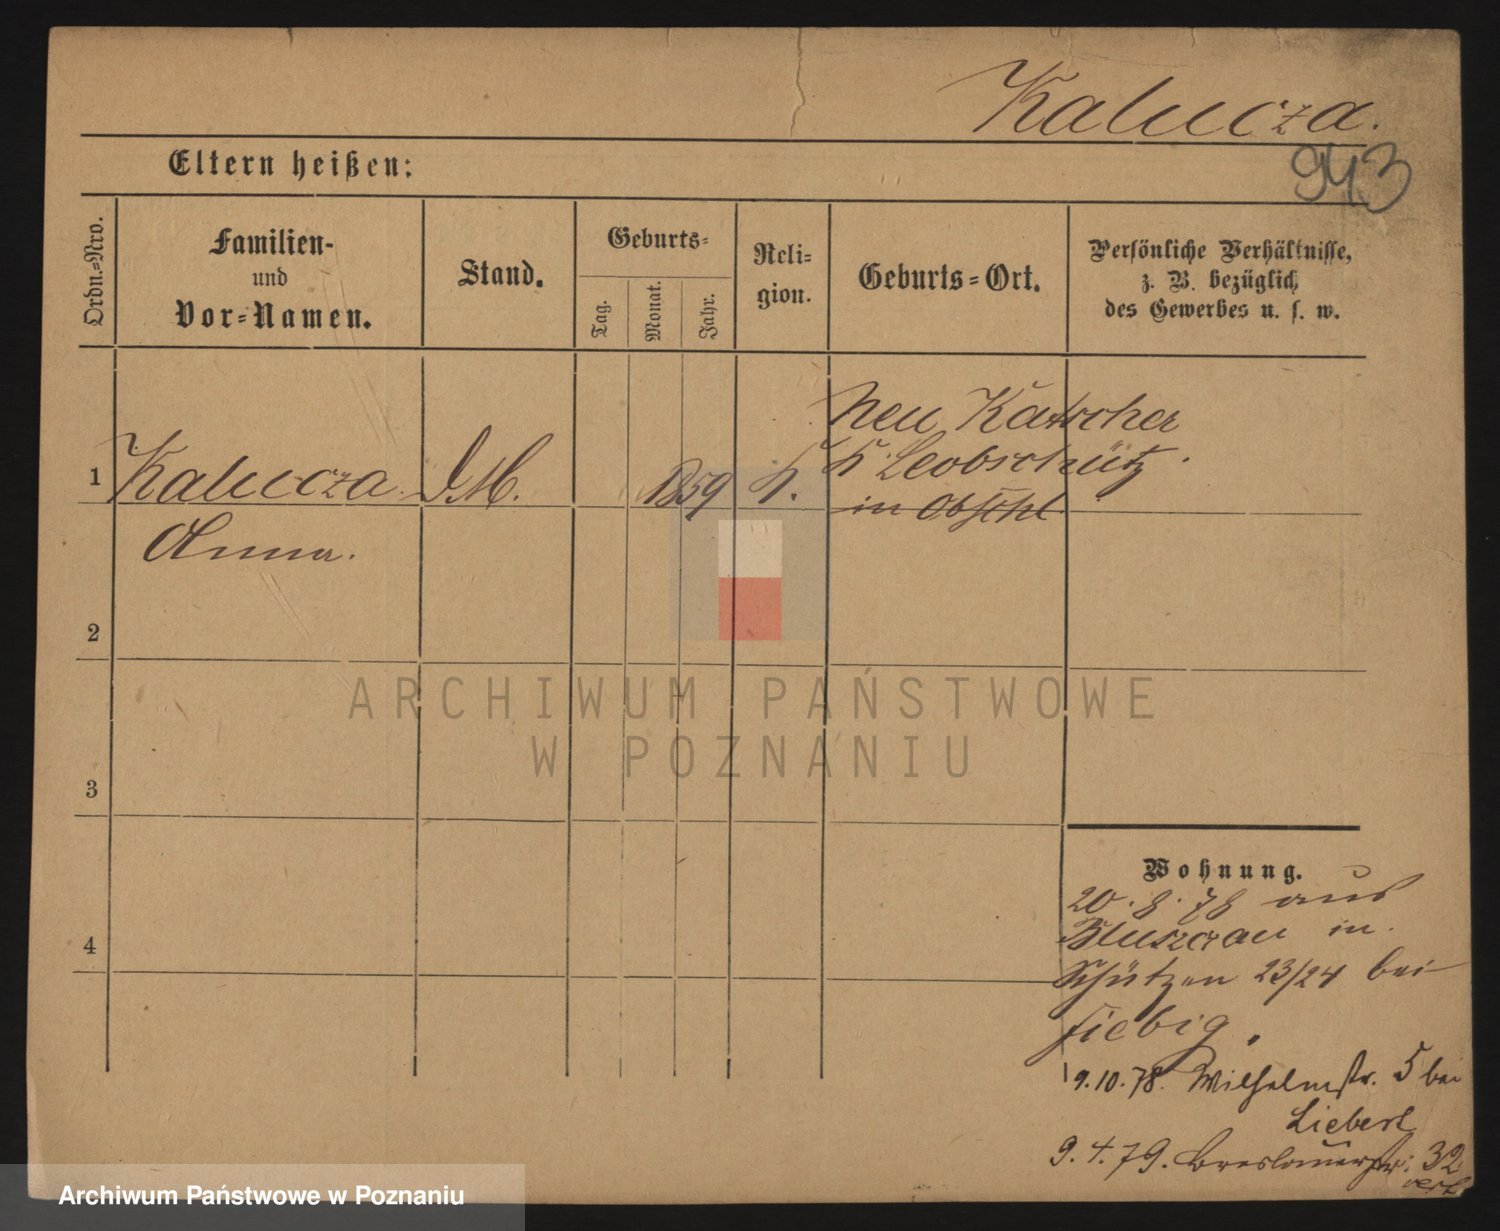 Kalucza.
943
Eltern heißen:
Ordn.=Nro.
Familien-
und
Vor=Namen.
Stand.
Geburts=
Tag.
Monat.
Jahr.
Reli=
gion.
Geburts=Ort.
Persönliche Verhältnisse,
z. B. bezüglich
des Gewerbes u. s. w.
1
Kalucza
Anna.
D.M.
1859
k.
Neu Katscher
K. Leobschütz.
in Obschl
2
3
4
ARCHIWUM PAŃSTWOWE
W POZNANIU
Wohnung.
20.8.78 aus
in
Schützen 23/24 bei
Fiebig.
9.10.78. Wilhelmstr. 5 bei
Liebert
9.4.79. Breslauerstr: 32
Archiwum Państwowe w Poznaniu